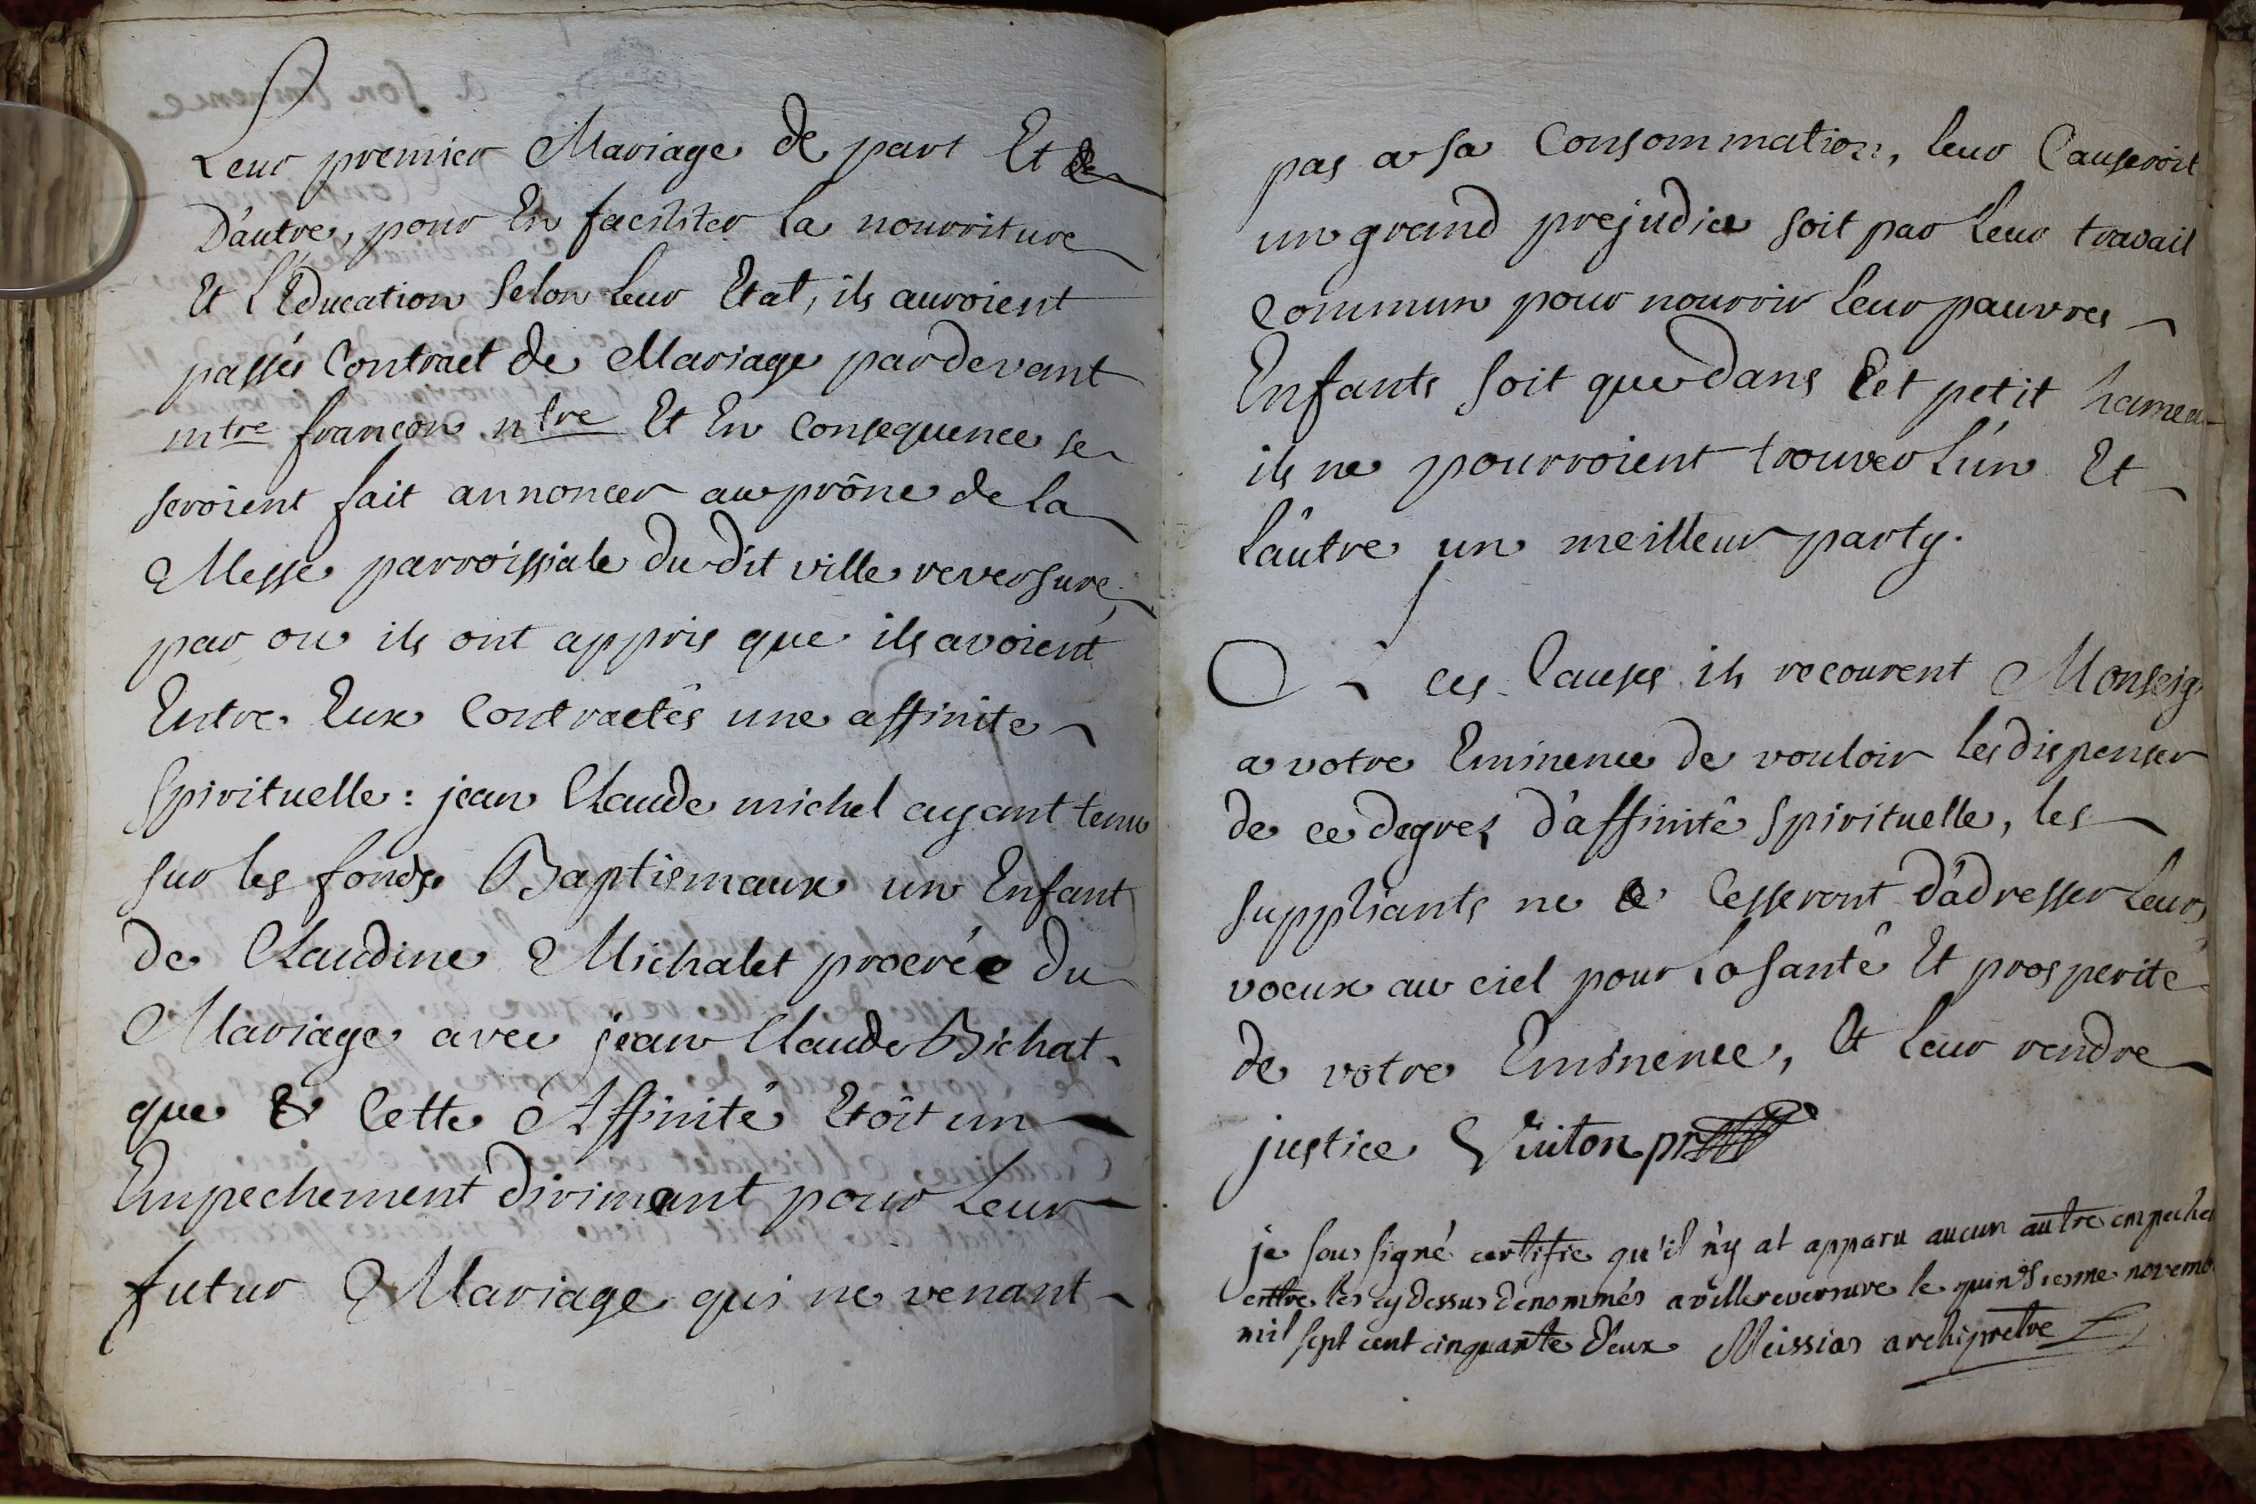 Leur premier Mariage de part Et de
D'autre, pour En faciliter la nourriture
Et L'Education Selon leur Etat, ils auroient
passés Contract de Mariage pardevant
mtre françon ntre Et En consequence se
seroient fait annoncer au prône de la
Messe parroissiale du dit ville reversure,
par ou ils ont appris que ils avoient
Entre Eux Contractés une affinite
Spirituelle : jean Claude michel ayant tenu
sur les fonds Baptismaux un Enfant
de Claudine Michalet procrée du
Mariage avec jean Claude Bichat
que Cette Affinité Etoit un
Empechement dirimant pour Leur
futur Mariage qui ne venant
pas a sa Consommation, leur Causeroit
un grand prejudice soit par Leur travail
commun pour nourrir Leur pauvres
Enfants soit que dans Cet petit hameau
ils ne pourroient trouver L'un Et
L'autre un meilleur party.
A ces Causes ils recourent Monseig
a votre Eminence de vouloir les dispenser
de ce degrez d'affinité Spirituelle, les
suppliants ne Cesseront d'adresser Leurs
voeux au ciel pour la santé Et prosperité
de votre Eminence, Et Leur rendre
justice
je sousigné certifie qu'il n'y at apparu aucun autre empeche
entre les cy dessus denommés a villereversure le quinsiesme novemb
mil sept cent cinquante deux Meissias archipretre